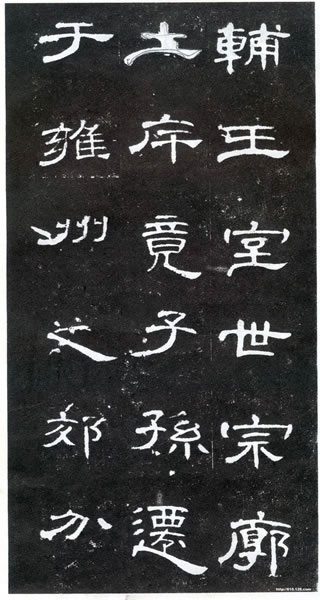 輔王室世宗廓
土斥竟子孫遷
于雍州之郊分